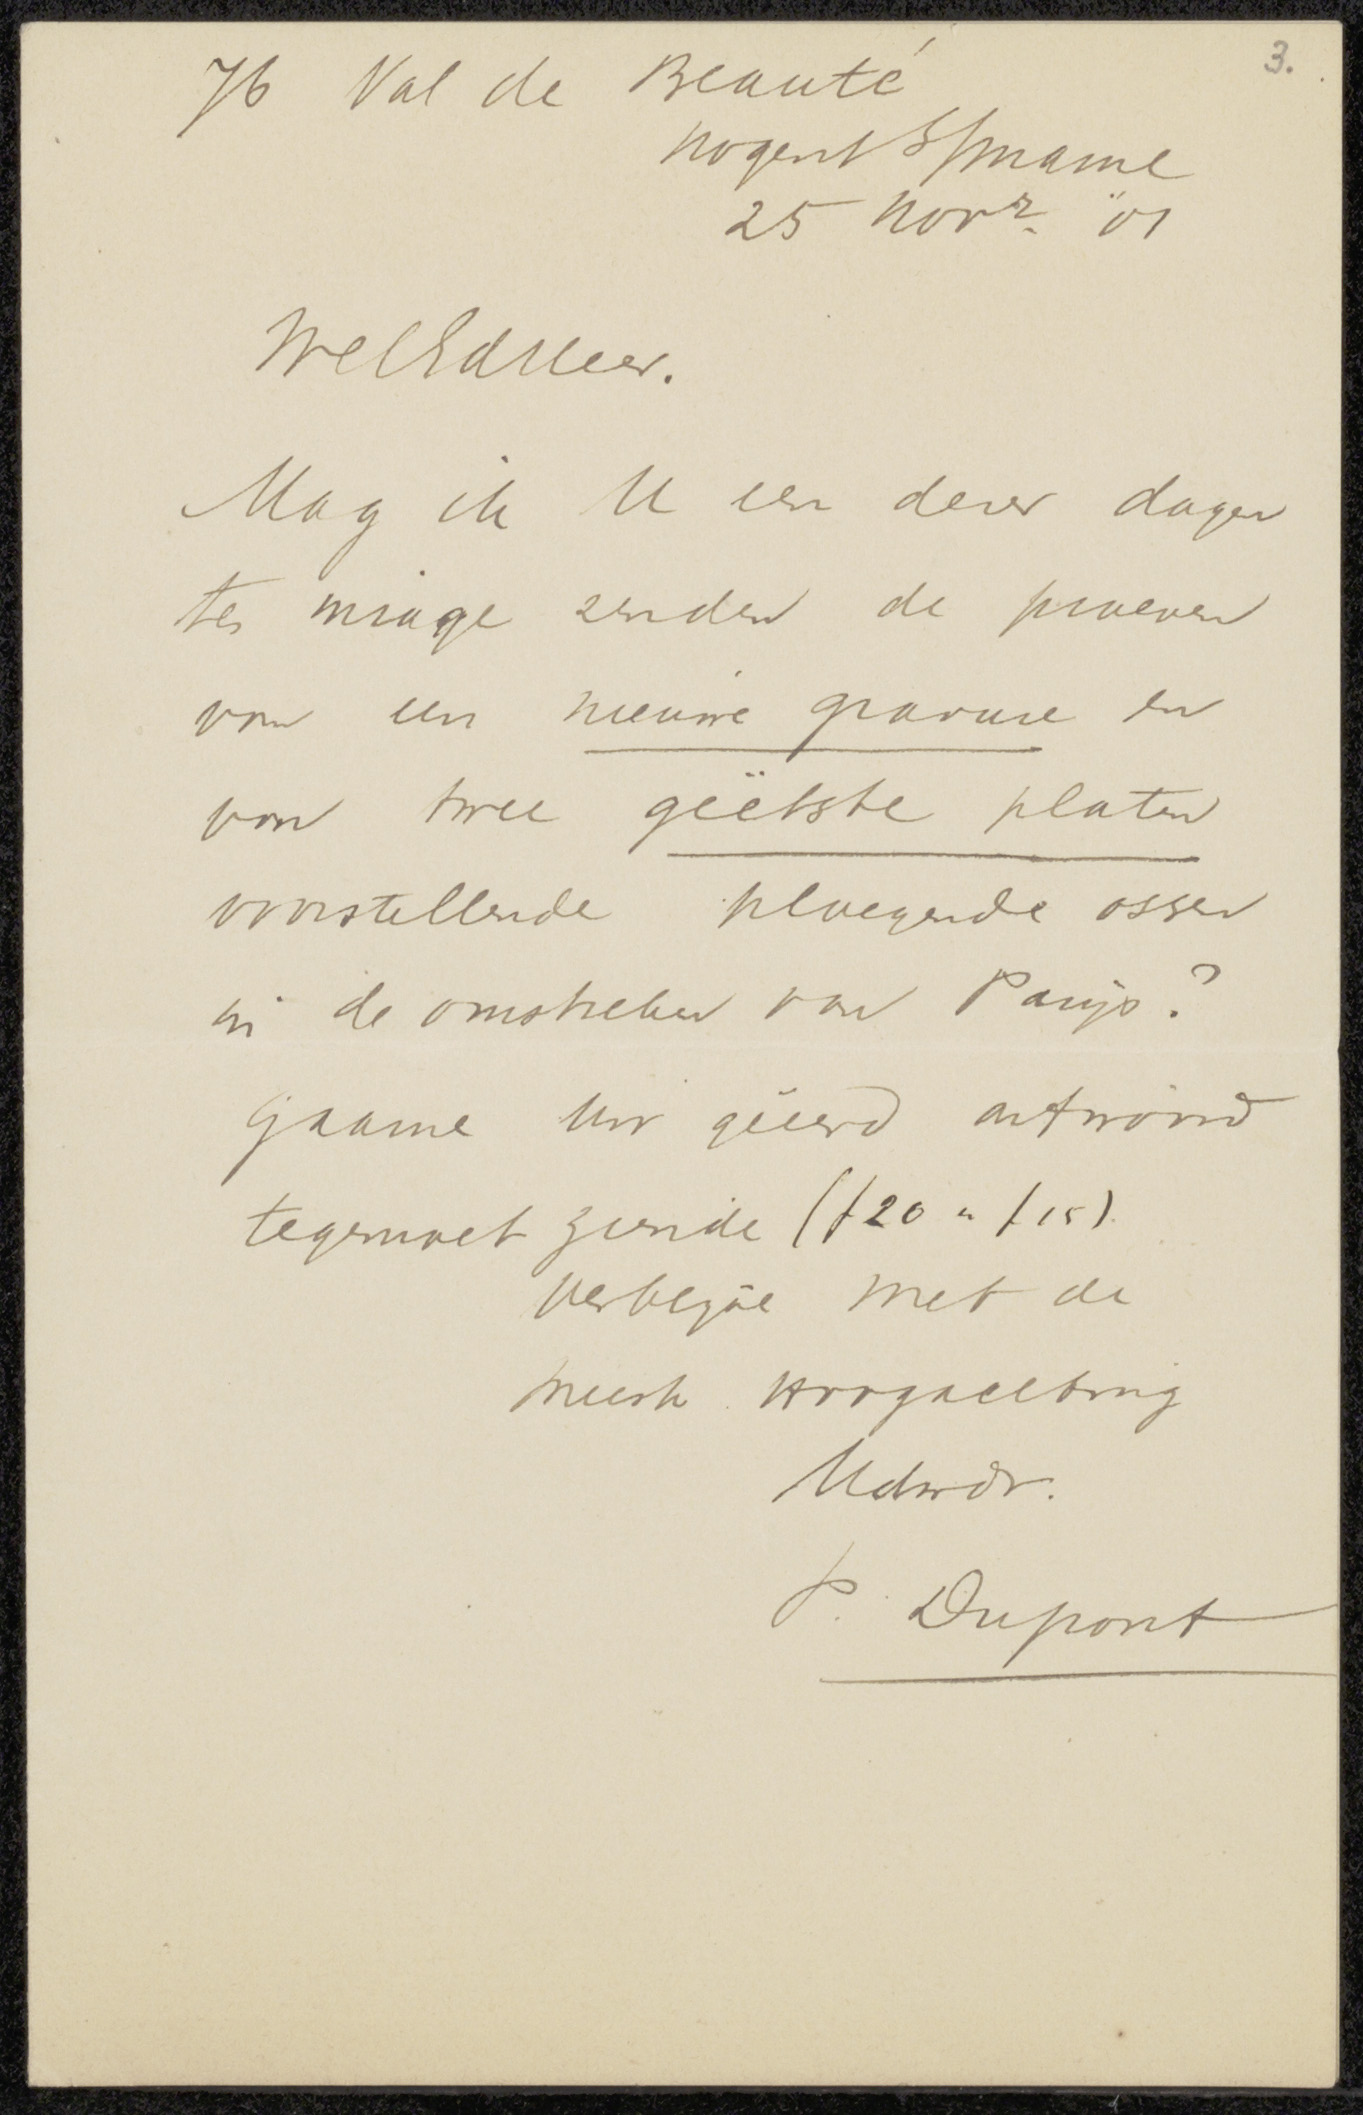 3.
76 Val de Beauté
Nogent S/Marne
25 Novr. '01
WelEdHeer.
Mag ik U een dezer dagen
ter inzage zenden de proeven
van een nieuwe gravure en
van twee geëtste platen
voorstellende ploegende ossen
in de omstreken van Parijs?
Gaarne Uw geëerd antwoord
tegemoet ziende (f 20 " f 15).
Verblijve met de
meeste Hoogachting
UEdwdr.
P. Dupont